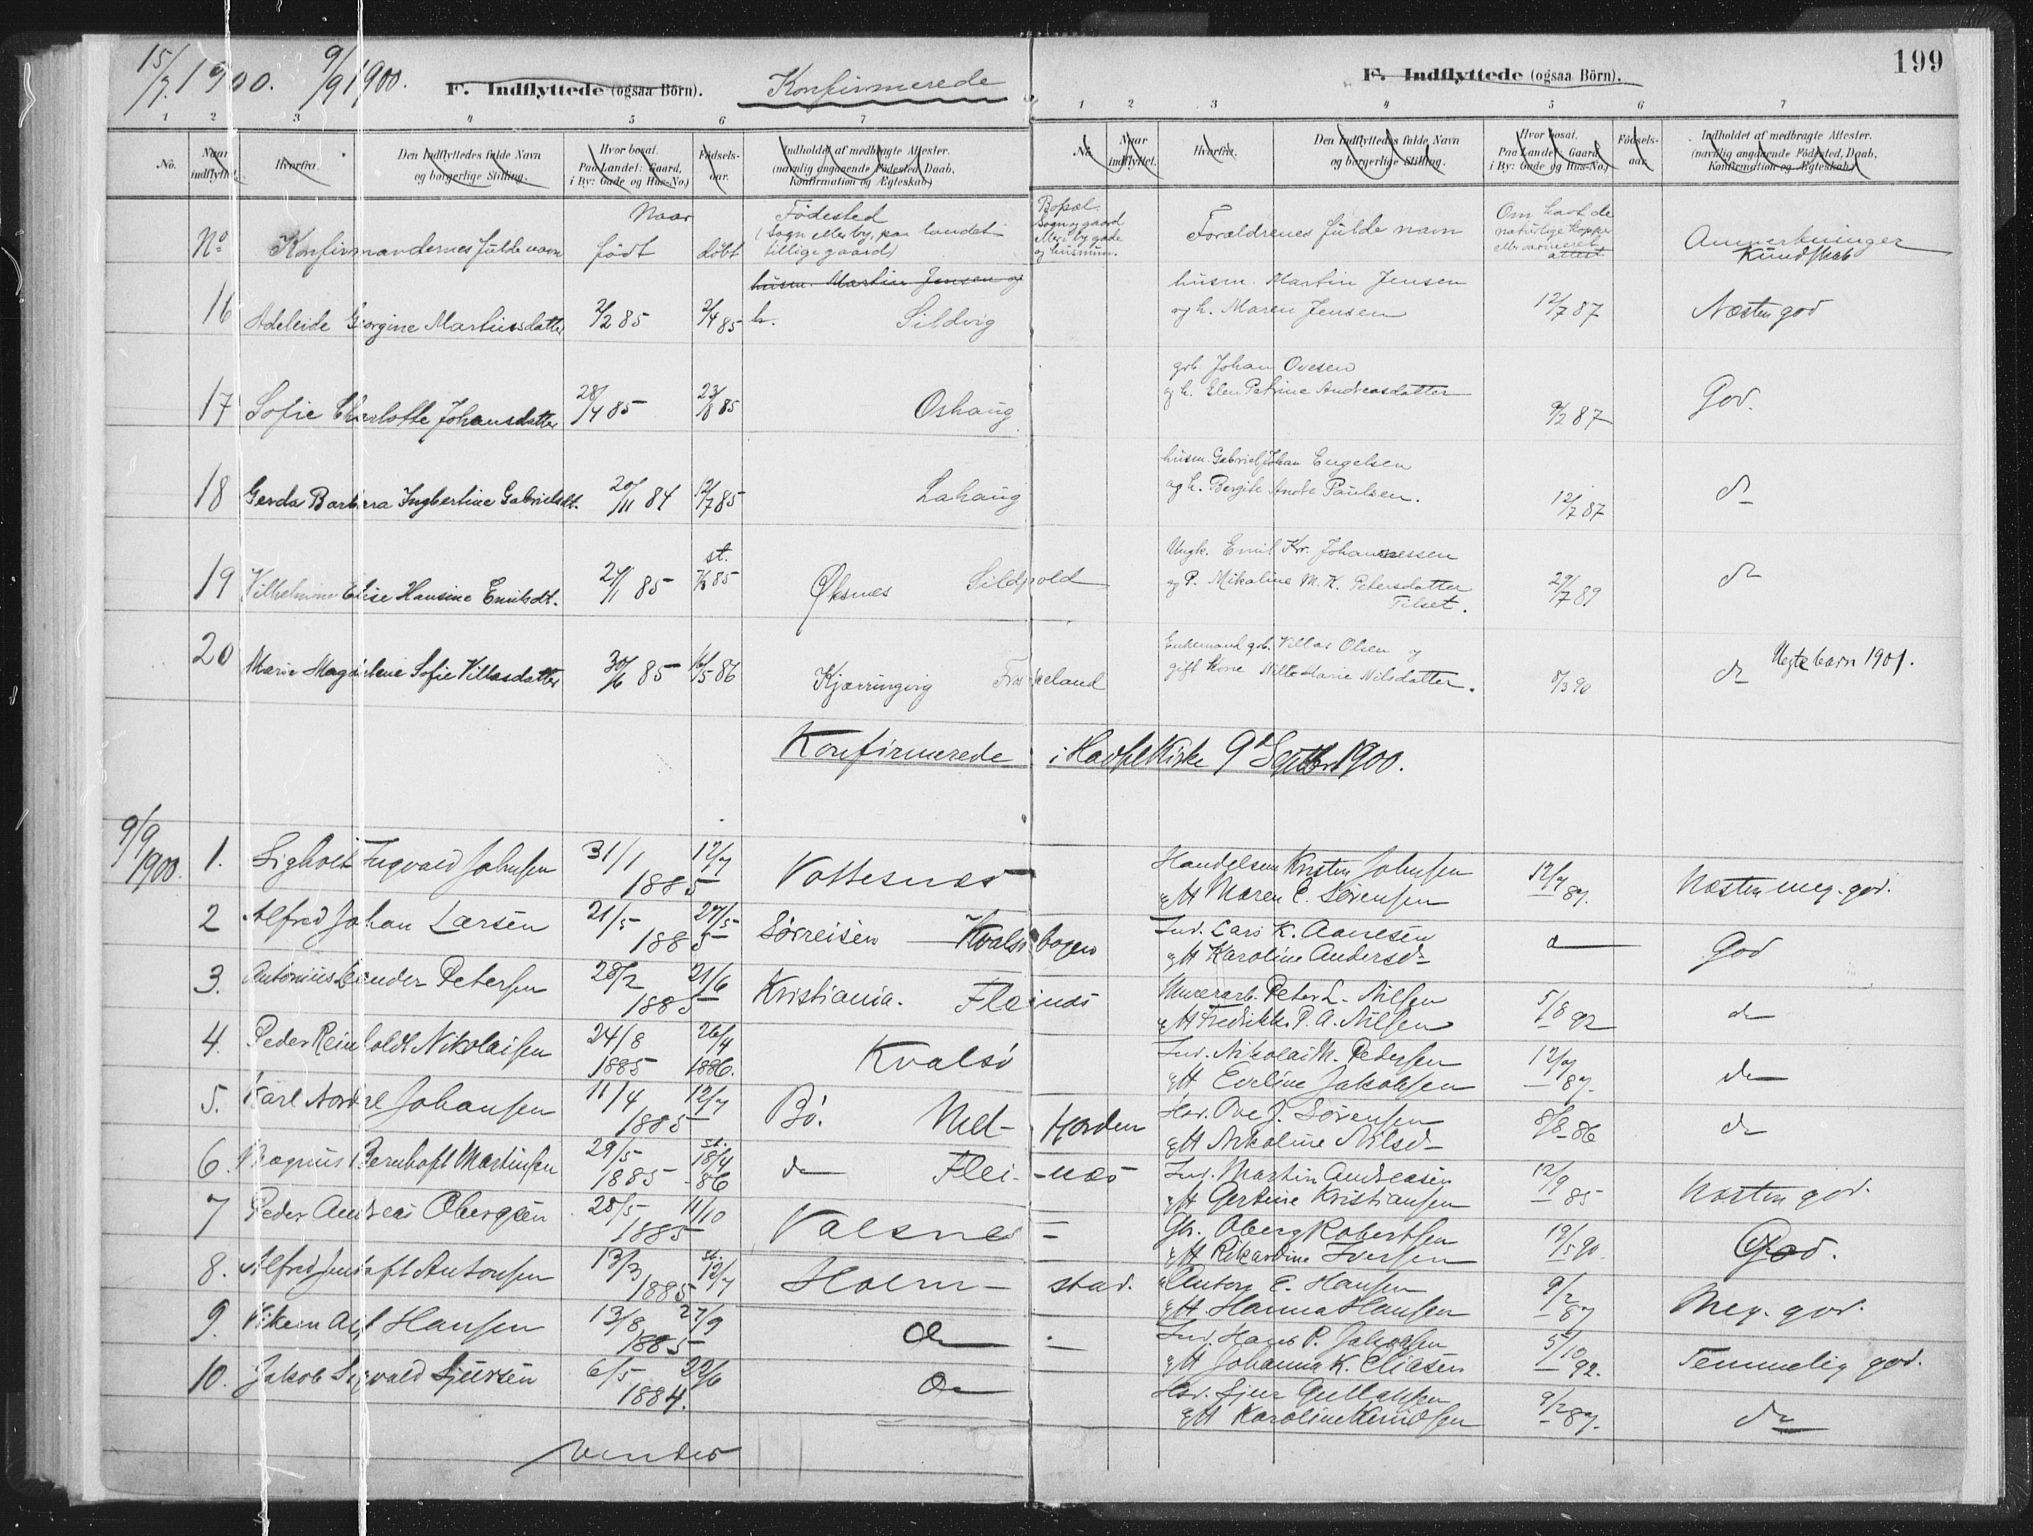 15/7 1900. 9/9 1900.
F. Indflyttede (ogsaa Börn). Konfirmerede
F. Indflyttede (ogsaa Börn). 199
1 2 3 4 5 6 7 1 2 3 4 5 6 7
No. Naar indflyttet. Hvorfra. Den Indflyttedes fulde Navn og borgerlige Stilling. Hvor bosat. Paa Landet: Gaard, i By: Gade og Hus-No.) Fødsels-aar. Indholdet af medbragte Attester. (navnlig angaaende Födested, Daab, Konfirmation og Ægteskab)
No. Naar indflyttet. Hvorfra. Den Indflyttedes fulde Navn og borgerlige Stilling. Hvor bosat. Paa Landet: Gaard, i By: Gade og Hus-No.) Fødsels-aar. Indholdet af medbragte Attester. (navnlig angaaende Födested, Daab, Konfirmation og Ægteskab)
No Konfirmandernes fulde navn Naar født døbt Fødested (Sogn eller by, paa landet tillige gaard) Bopæl. Sogn og gaard eller by gade og husnum. Forældrenes fulde navn Om havt de naturlige kopper eller vaccineret attest Anmerkninger Kundskab
husm. Martin Jensen og
16 Adeleide Georgine Martinsdatter 2/2 85 2/4 85 h. Sildvig husm. Martin Jensen
og h. Maren Jensen 12/7 87 Næsten god
17 Sofie Charlotte Johansdatter 28/4 85 23/8 85 Oshaug grb. Johan Ovesen
og h. Elen Petrine Andreasdatter 9/2 87 God.
18 Gerda Barbara Ingbertine Gabrielsdt. 20/11 84 12/7 85 Lahaug husm. Gabriel Johan Engelsen
og h. Bergite Andr Paulsen. 12/7 87 do
19 Vilhelmine Elise Hansine Emilsdt. 27/1 85 st. 85 Øksnes Sildpold Ungk. Emil Kr. Johannessen
og P. Mikaline M. K. Petersdatter
Tilset. 29/7 89 do
20 Marie Magdalene Sofie Villasdatter 30/6 85 16/5 86 Kjærringvig Enkemand grb. Villas Olsen og
gift kone Marie Nilsdatter. 8/3 90 do Uegte barn 1901.
Konfirmerede i Hadsel Kirke 9d Septbr 1900.
9/9 1900. 1. Sigholt Ingvald Johnsen 31/1 1885 12/7 Vottesnes Handelsm Kristen Johnsen
gtH Maren E. Sørensen 12/7 87. Næsten meg. god.
2 Alfred Johan Larsen 21/5 1885 27/5 Sørreisen Kvalsøbogen Ind. Lars K. Aanesen
gtH Karoline Andersd do God
3. Antonius Leander Petersen 28/2 1885 21/6 Kristiania. Fleines Murerarb. Peter L. Nilsen
gtH Fredrikke P. A. Nilsen 5/8 92 do
4. Peder Reinholdt Nikolaisen 24/8 1885 26/4 1886. Kvalsö Ind. Nikolai M. Pedersen
gtH Eveline Jakobsen 12/7 87. do
5. Karl Nordal Johansen 11/4 1885 12/7 Bö. Med- Horden Hov. Ove J. Sørensen
gtH Nikoline Nilsd 8/8 86 do
6. Magnus Bernhoft Martinsen 29/5 1885 st. 18/4 86 do Flei- -nes Ind. Martin Andreasen
gtH Gertine Kristiansen 12/9 85 Næsten god.
7 Peder Andreas Obergsen 28/5 1885 11/10 Valsnes = Gb. Oberg Robertsen
gtH Rikardine Iversen 19/5 90. God.
8. Alfred Jentoft Antonsen 13/3 1885 st. 12/7 Holm- stad. Anton E. Hansen
gtH Hanna Hansen 9/2 87 Meg. god.
9. Vikern Alf Hansen 13/8 1885 27/9 do Ind. Hans P. Jakobsen
gtH Johanna K. Eliasen 5/10 92. Temmelig god.
10. Jakob Sigvald Sjursen 6/5 1884. 29/6 do Hov. Sjur Gullaksen
gtH Karoline Knudsen 9/2 87. do
vender